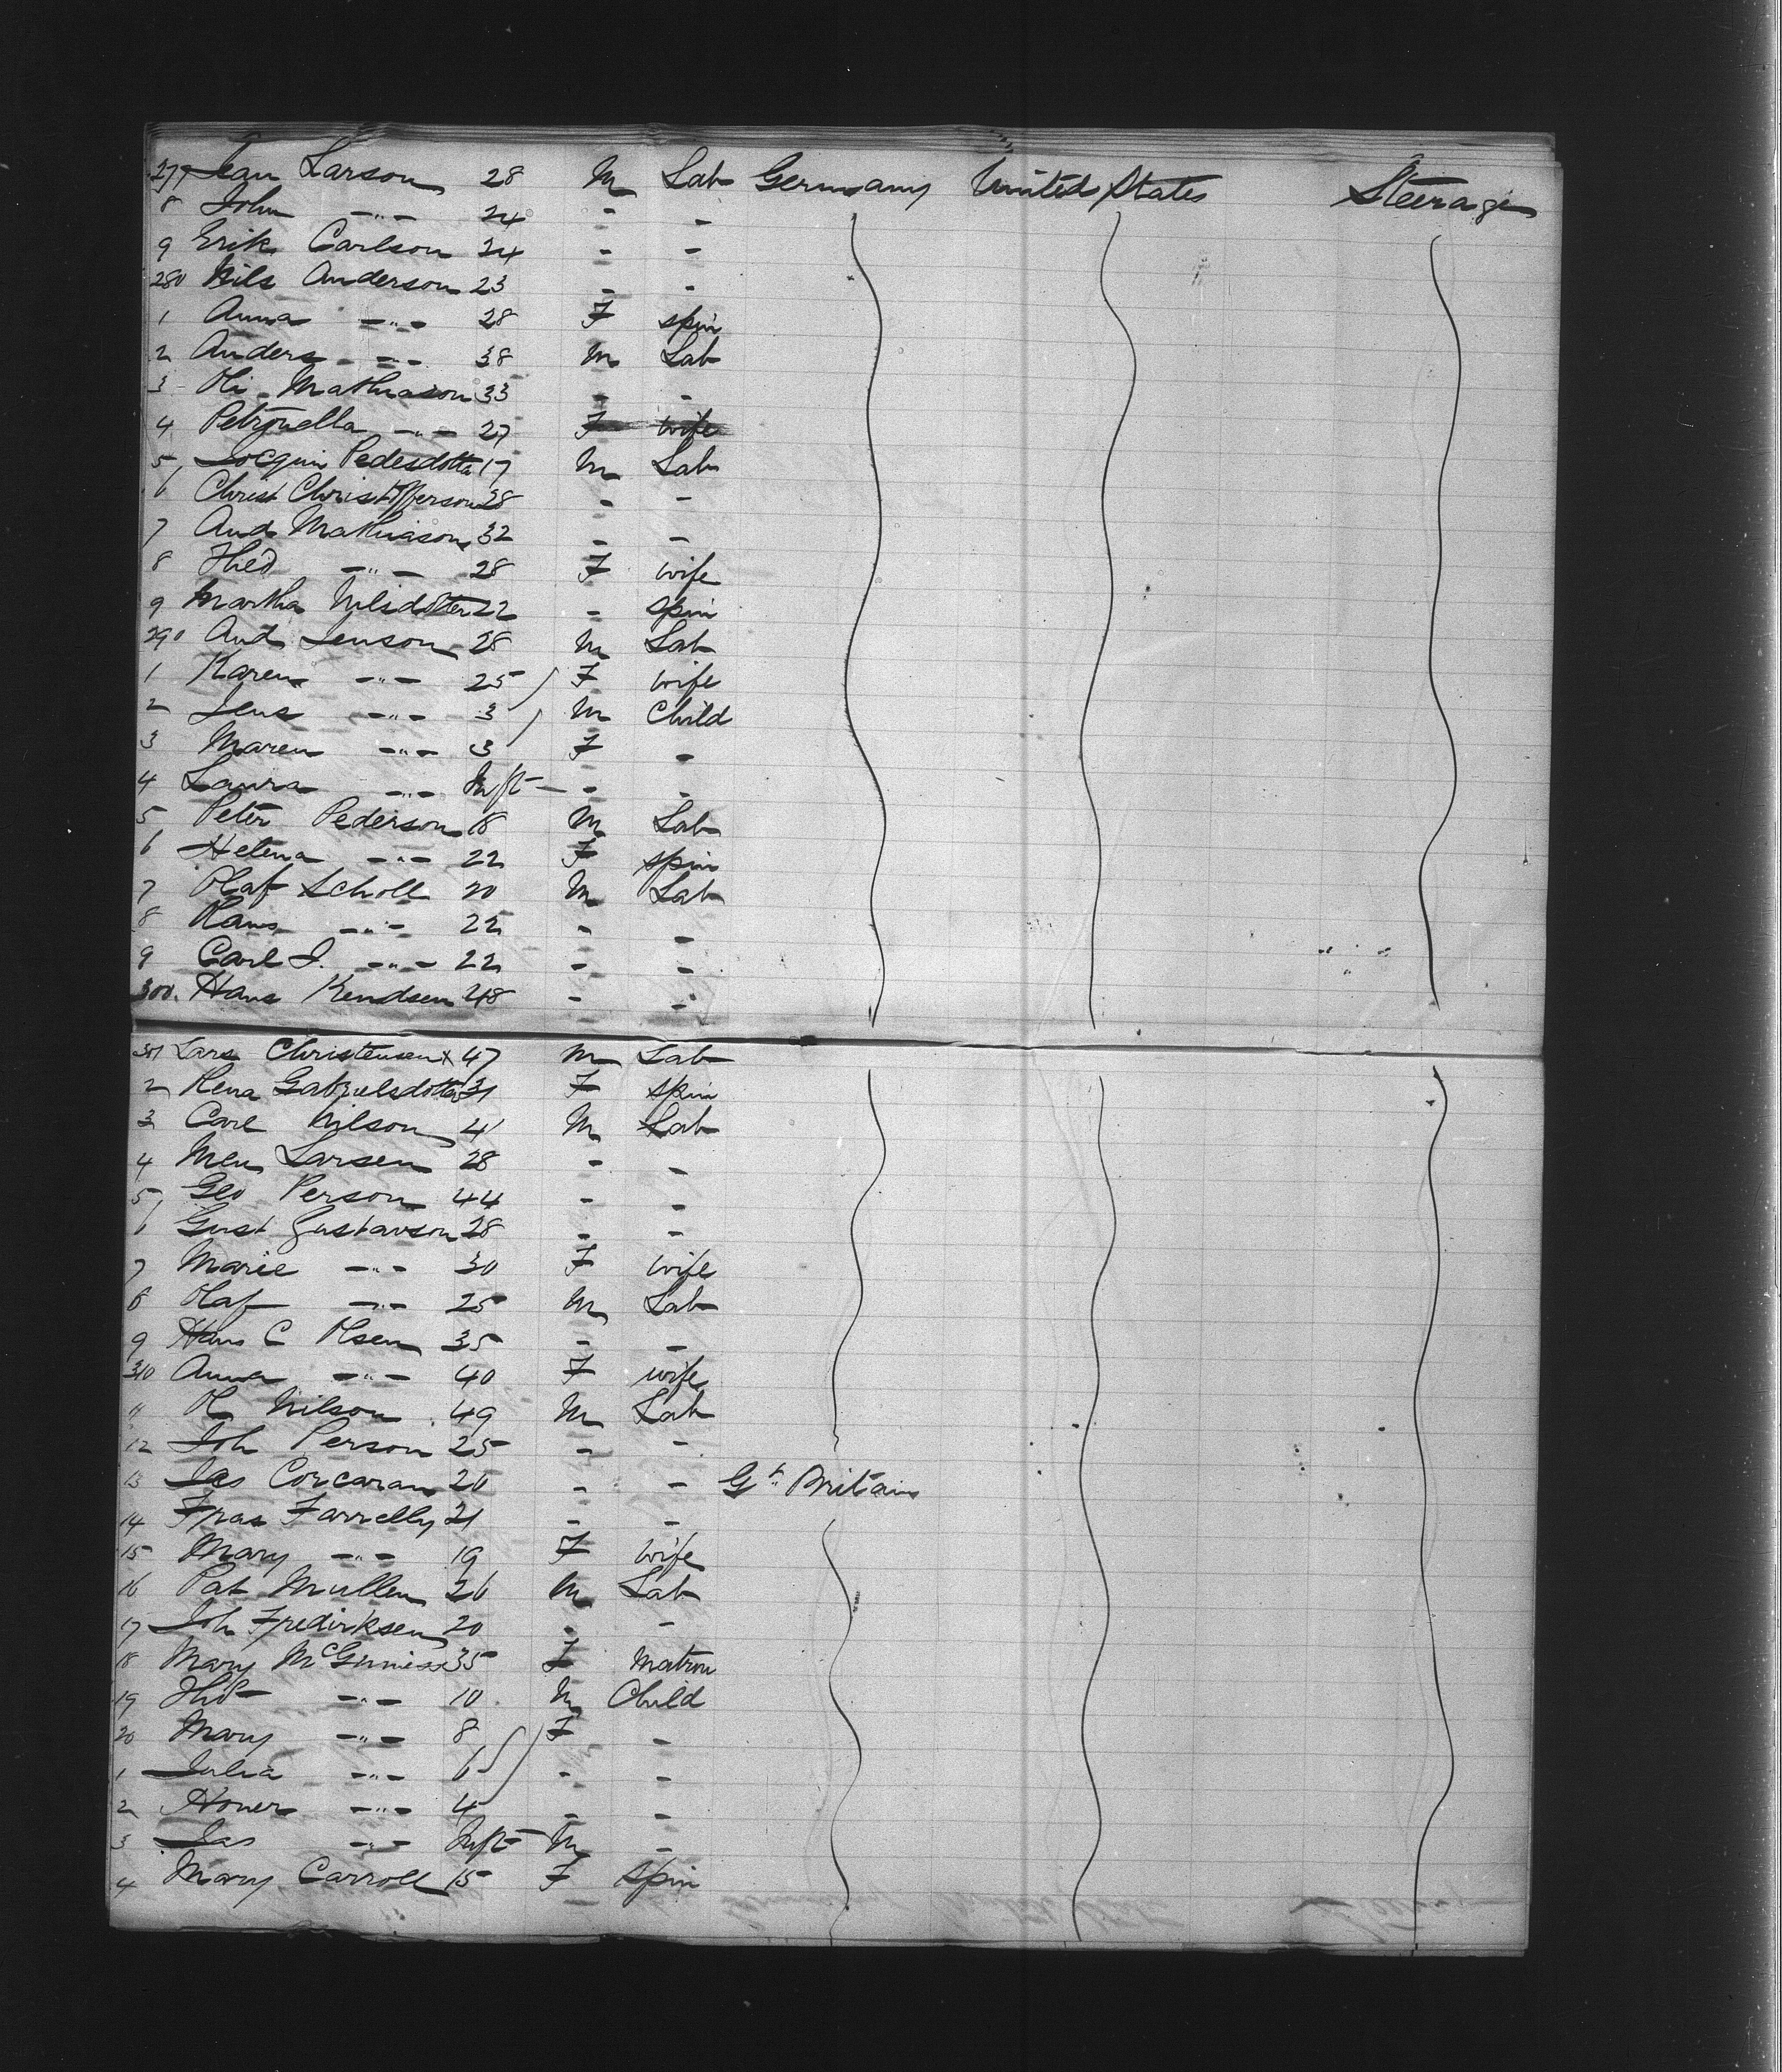 277 Jean Larson 28 M Lab Germany United States Steerage
8 John -"- 24 - -
9 Erik Carlson 24 - -
280 Nils Anderson 23 - -
1 Anna -"- 28 F spin
2 Anders -"- 38 M Lab
3 Ole Mathiason 33 - -
4 Petronella -"- 27 F wife
5 Jocquin Pedesdotta 17 M Lab
6 Christ Christofferson 28 - -
7 And Mathiason 32 - -
8 Hed -"- 28 F wife
9 Martha Nilsdotter 22 - spin
290 And Jenson 28 M Lab
1 Karen -"- 25 F wife
2 Jens -"- 3 M Child
3 Maren -"- 3 F -
4 Laura -"- Inft - -
5 Peter Pederson 18 M Lab
6 Helena -"- 22 F spin
7 Olaf Scholl 20 M Lab
8 Hans -"- 22 - -
9 Carl J. -"- 22 - -
300. Hans Kendsen 48 - -
301 Lars Christensen x 47 M Lab
2 Rena Gabrielsdotta 31 F spin
3 Carl Nilson 41 M Lab
4 Larsen 28 - -
5 Geo Person 44 - -
6 Gust Gustavson 28 - -
7 Marie -"- 30 F wife
8 Olaf -"- 25 M Lab
9 Hans C Olsen 35 - -
310 Anna -"- 40 F wife
11 Ol Nilson 49 M Lab
12 Joh Person 25 - -
13 Jas Corcaran 26 - - Gt. Britain
14 Fras Farrelly 21 - -
15 Mary -"- 19 F wife
16 Pat Mullen 26 M Lab
17 Joh Fredirksen 20 - -
18 Mary McGinniss 35 F Matron
19 -"- 10 M Child
20 Mary -"- 8 F -
1 Julia -"- 6 - -
2 Honer -"- 4 - -
3 Jas -"- Inft M -
4 Mary Carroll 15 F Spin